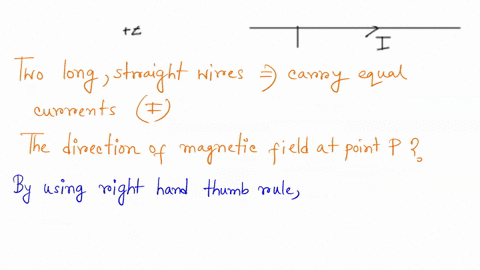 +z
I
Two long, straight wires ⇒ carry equal
currents (I)
The direction of magnetic field at point P?
By using right hand thumb rule,